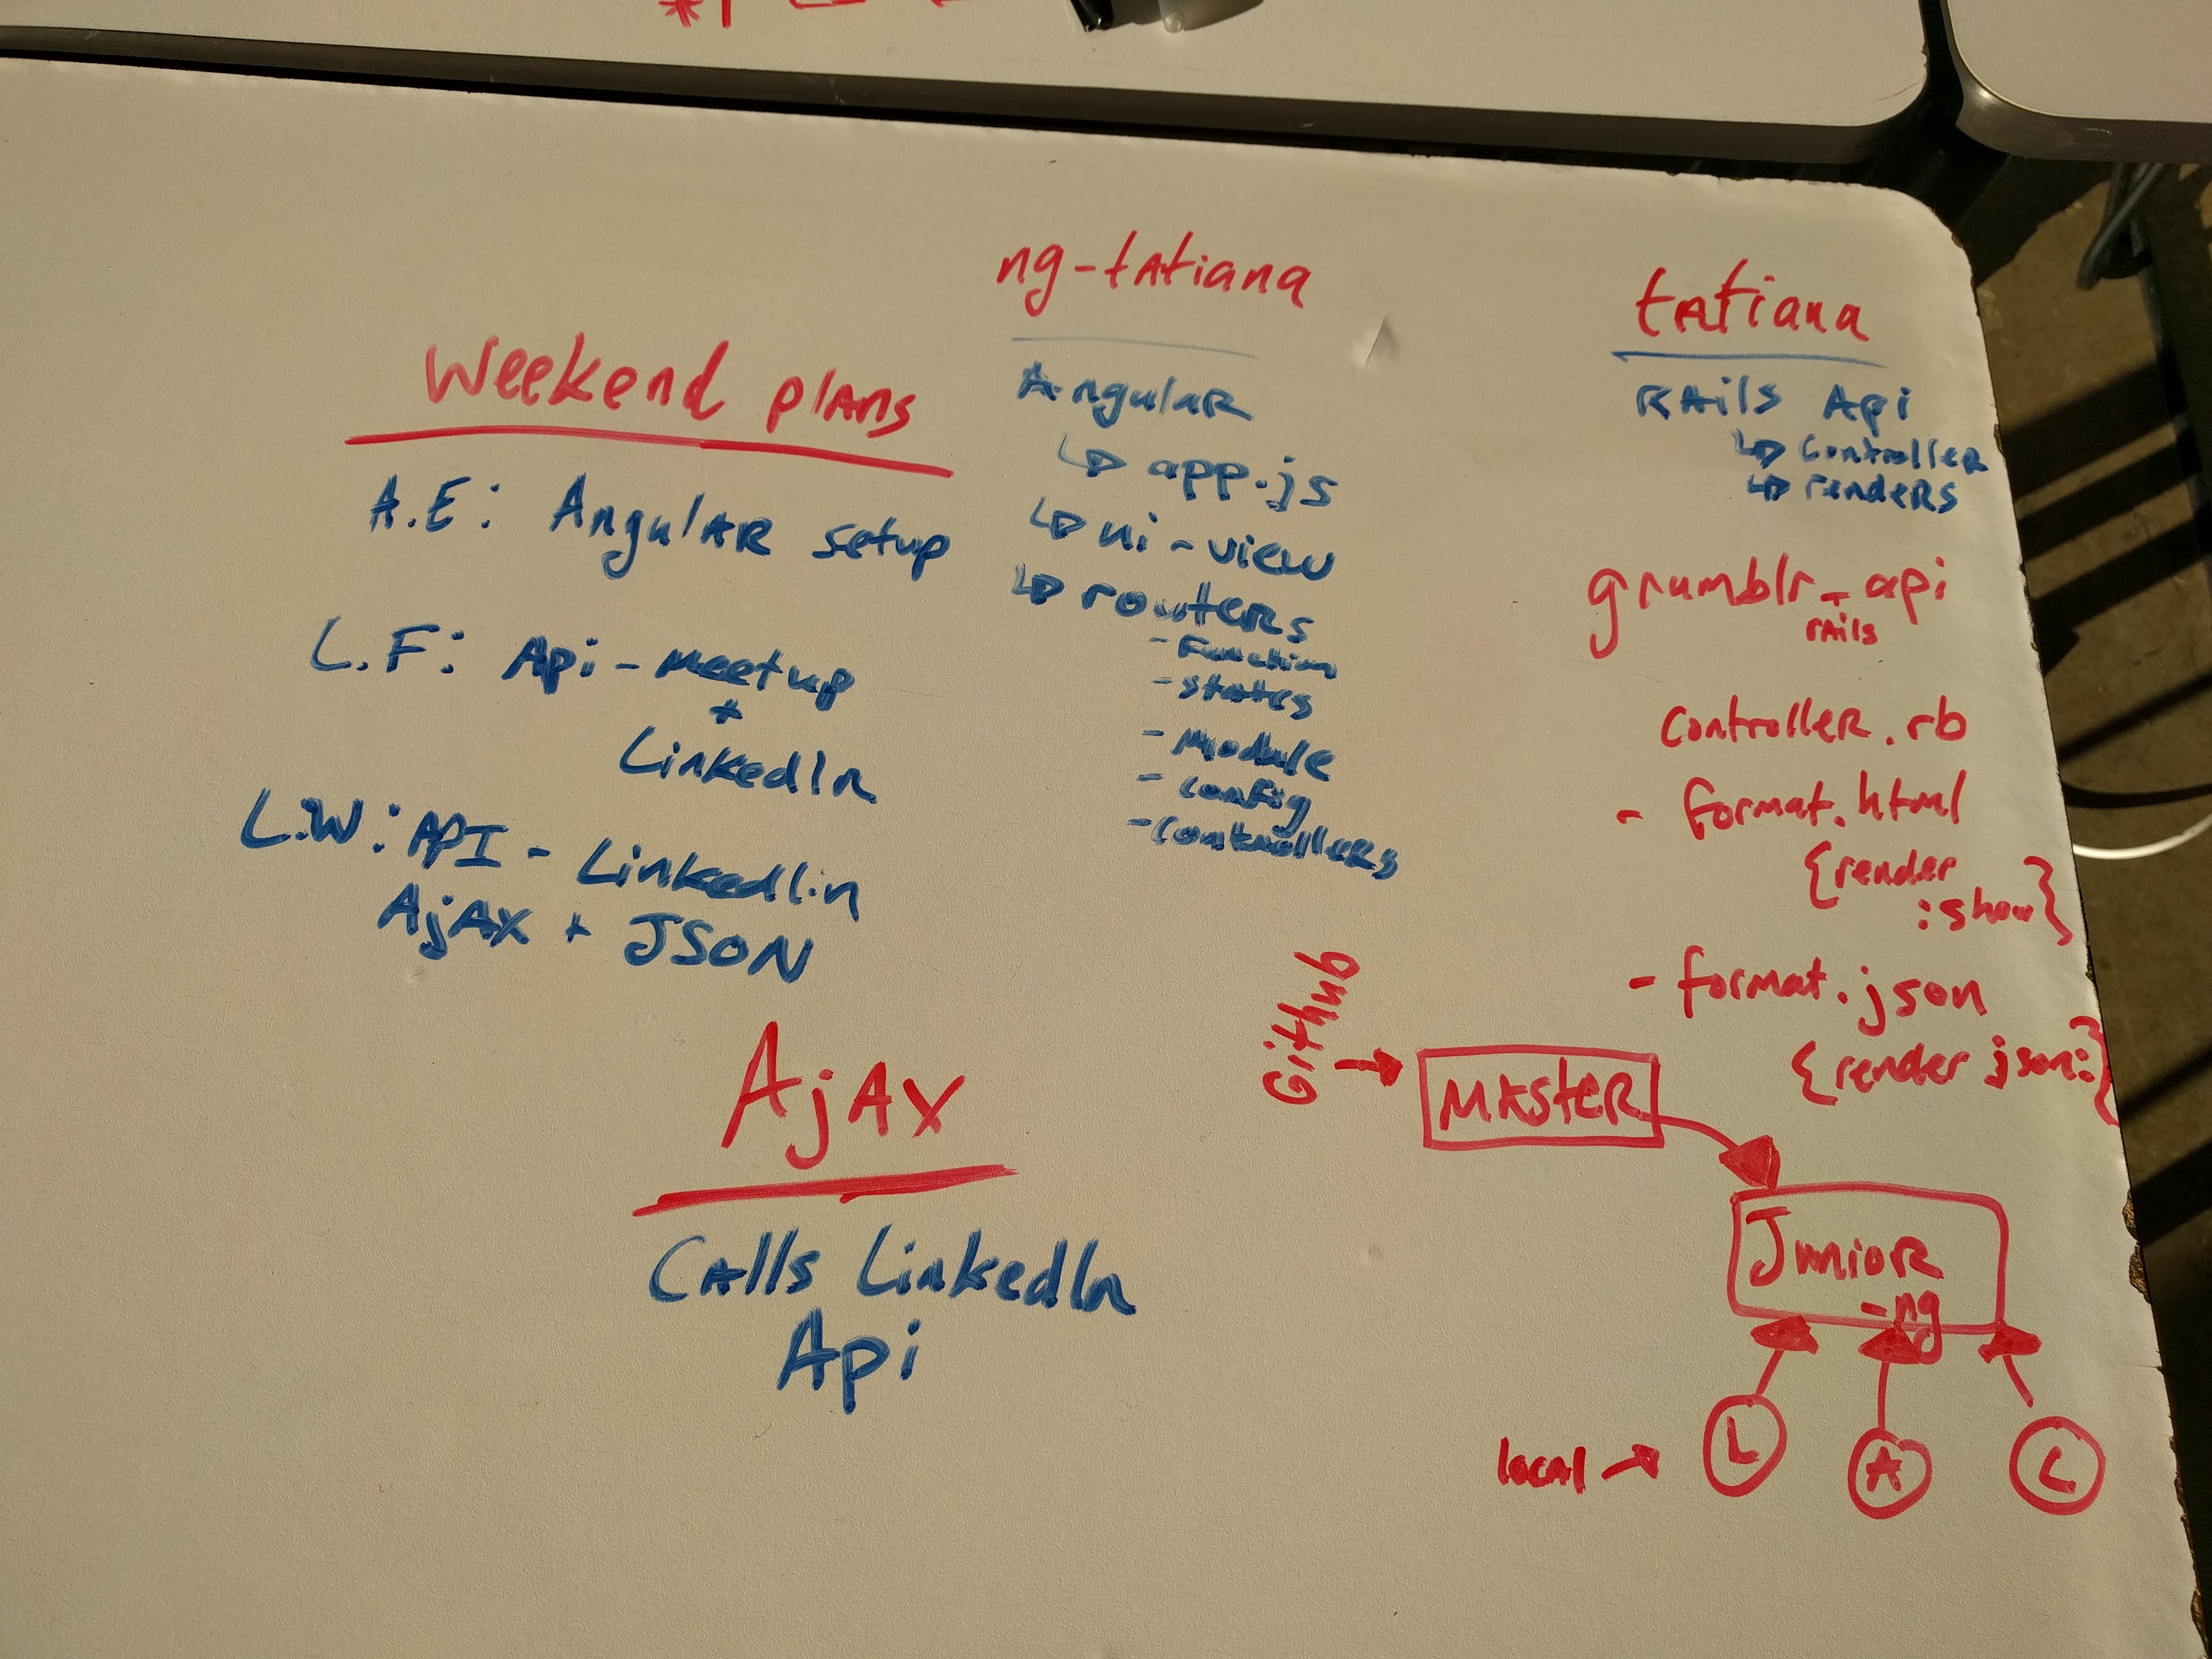 Weekend plans
A.E: Angular setup
L.F: Api - meetup
+
LinkedIn
L.W: API - LinkedIin
AjAX + JSON
AjAX
Calls LinkedIn
Api
ng-tatiana
Angular
↳ app.js
↳ ui-view
↳ routers
- Function
- states
- Module
- config
- controllers
tatiana
Rails Api
↳ controller
↳ renders
grumblr_api
rails
controller.rb
- format.html
{render
:show}
- format.json
{render json:}
Github →
MASTER
Junior
-ng
local →
L
A
L